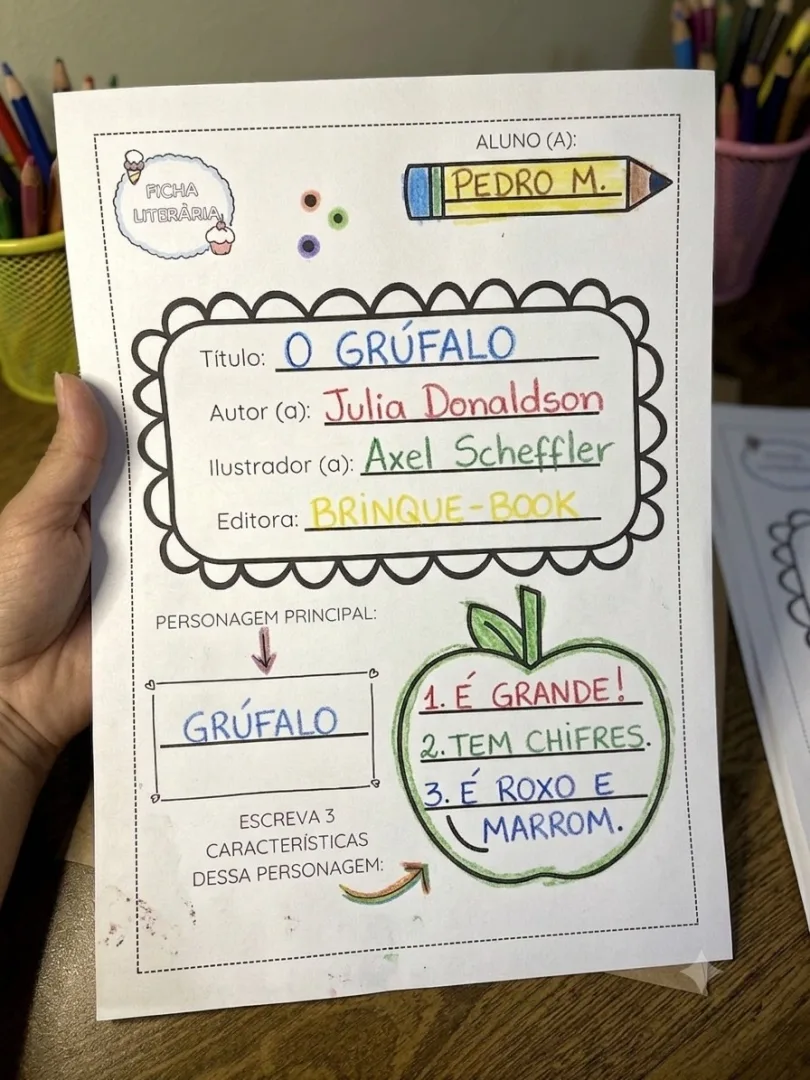 FICHA
LITERÀRIA
ALUNO (A):
PEDRO M.
Título: O GRÚFALO
Autor (a): Julia Donaldson
Ilustrador (a): Axel Scheffler
Editora: BRINQUE-BOOK
PERSONAGEM PRINCIPAL:
GRÚFALO
ESCREVA 3
CARACTERÍSTICAS
DESSA PERSONAGEM:
1. É GRANDE!
2. TEM CHIFRES.
3. É ROXO E
MARROM.